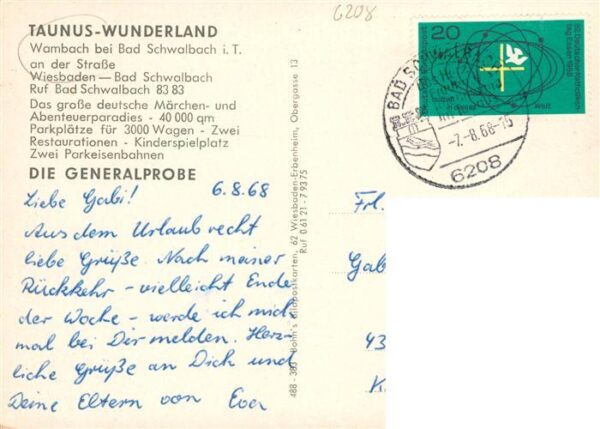 6208
TAUNUS-WUNDERLAND
Wambach bei Bad Schwalbach i. T.
an der Straße
Wiesbaden — Bad Schwalbach
Ruf Bad Schwalbach 83 83
Das große deutsche Märchen- und
Abenteuerparadies - 40 000 qm
Parkplätze für 3000 Wagen - Zwei
Restaurationen - Kinderspielplatz
Zwei Parkeisenbahnen
DIE GENERALPROBE
6.8.68
Liebe Gabi!
Aus dem Urlaub recht
liebe Grüße. Nach meiner
Rückkehr - vielleicht Ende
der Woche - werde ich mich
mal bei Dir melden. Herz-
liche Grüße an Dich und
Deine Eltern von Eva
Bildpostkarten, 62 Wiesbaden-Erbenheim, Obergasse 13
Ruf 0 61 21 - 7 93 75
20
82. Deutscher Katholiken
tag Essen 1968
mitten in dieser Welt
BAD
-7.-8.68-15
6208
Frl.
Gab
43